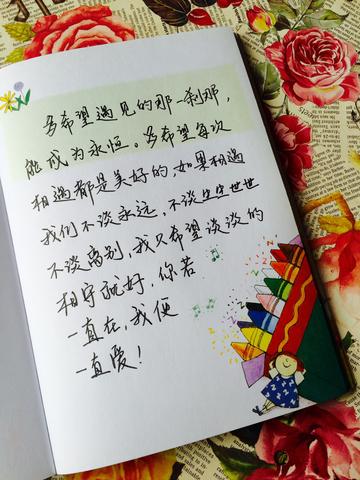 多希望遇见的那一刹那，
能成为永恒。多希望每次
相遇都是美好的，如果相遇
我们不谈永远，不谈生生世世
不谈离别，我只希望淡淡的
相守就好，你若
一直在，我便
一直爱！